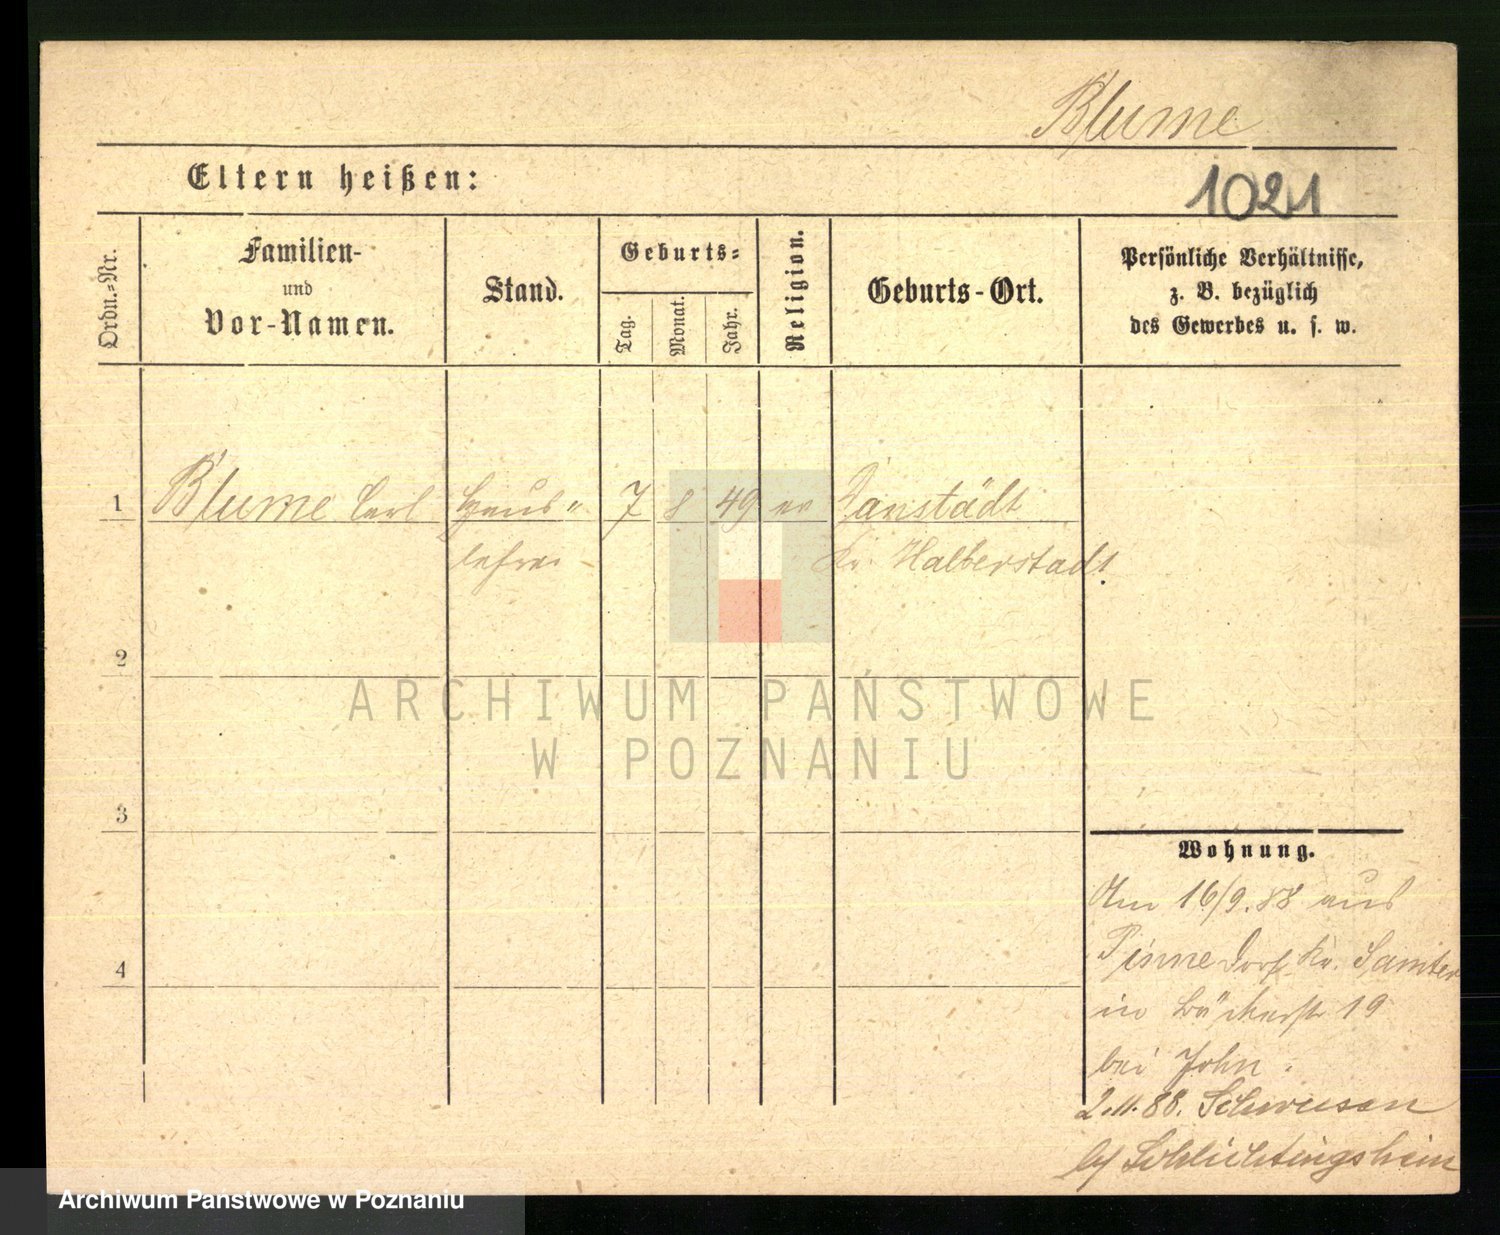 Blume
Eltern heißen:
1021
Ordn.=Nr.
Familien-
und
Vor-Namen.
Stand.
Geburts=
Tag.
Monat.
Jahr.
Religion.
Geburts-Ort.
Persönliche Verhältnisse,
z. B. bezüglich
des Gewerbes u. s. w.
1 Blume Carl Haus" 7 8 49 ev Danstädt
lehrer Kr. Halberstadt.
2
ARCHIWUM PAŃSTWOWE
W POZNANIU
3
Wohnung.
Am 16/9.88 aus
4
Pinne Dorf Kr. Samter
in Bäckerstr 19
bei John.
2.11.88. Schwusen
b/ Schlichtingsheim
Archiwum Państwowe w Poznaniu